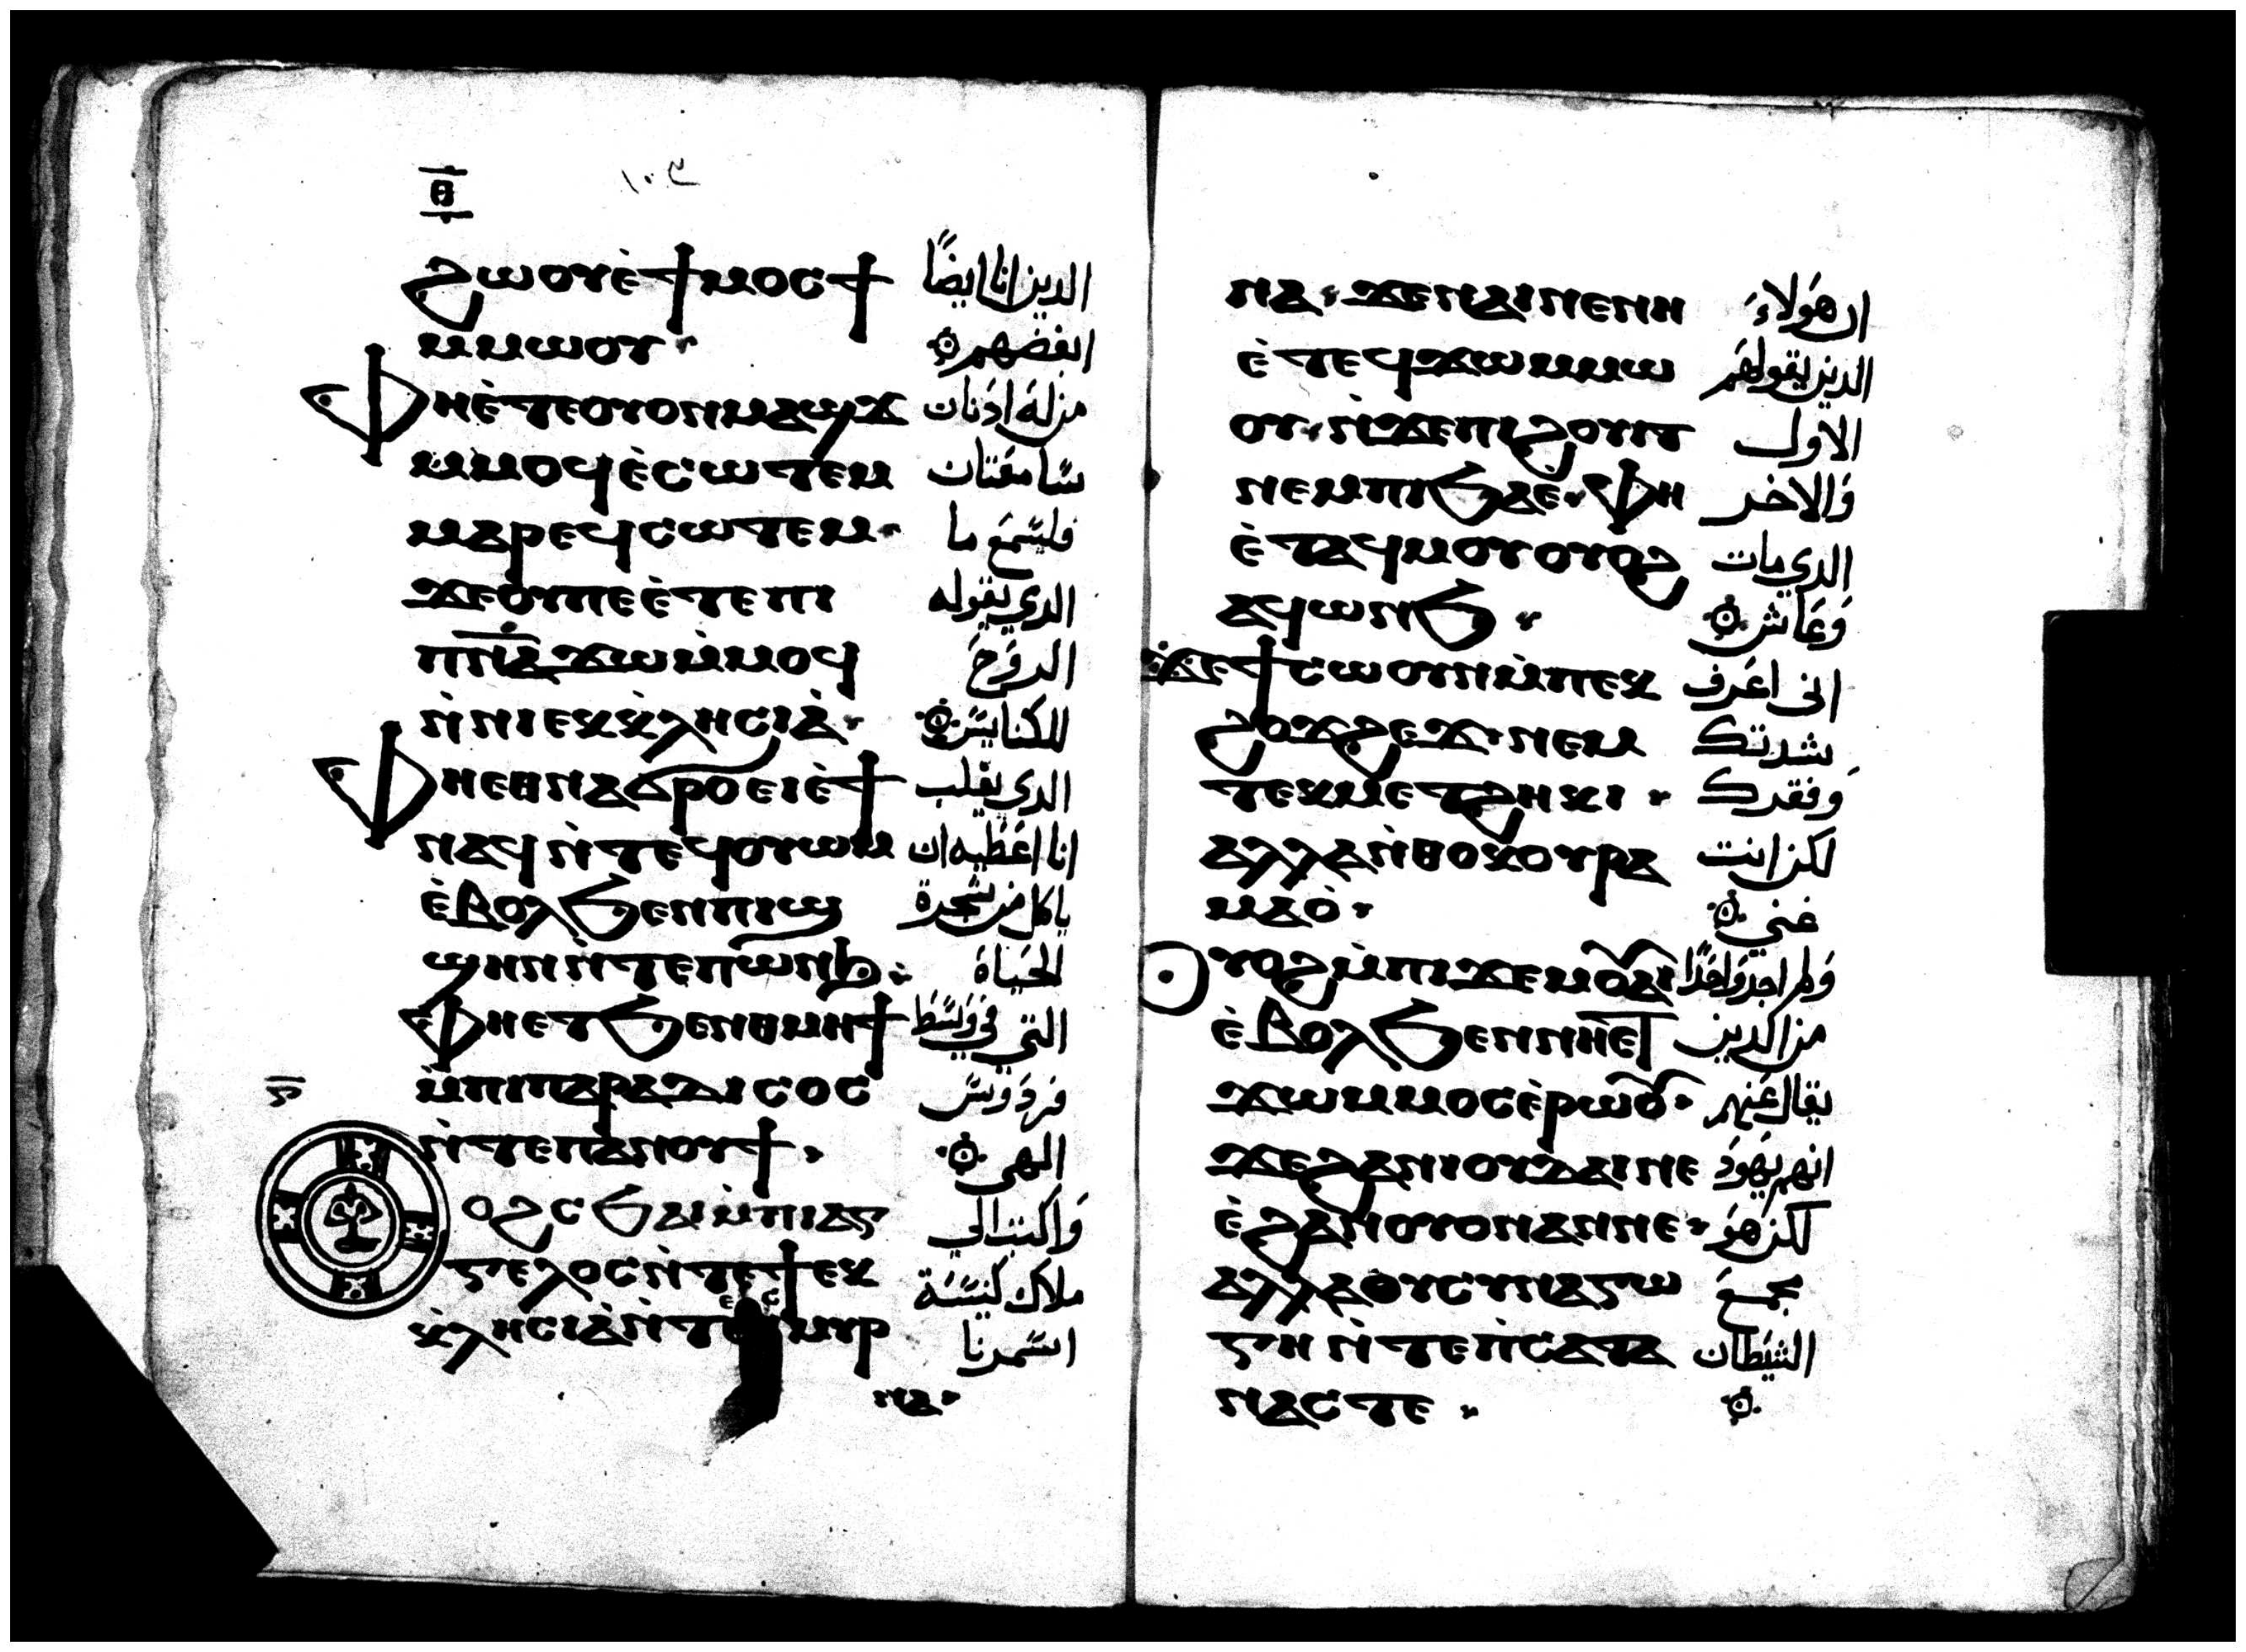 ⲑ
١٠٣
ϩⲱⲟⲩⲉ̀ϯⲙⲟⲥϯ الدين انا ايضًا
ⲙⲙⲱⲟⲩ ابغضهم
ⲫⲏⲉ̀ⲧⲉⲟⲩⲟⲛⲙⲁϣϫ من له ادنان
ⲙⲙⲟϥⲉ̀ⲥⲱⲧⲉⲙ سامعتان
ⲙⲁⲣⲉϥⲥⲱⲧⲉⲙ فليسمع ما
ϫⲉⲟⲩⲡⲉⲉ̀ⲧⲉⲡⲓ الدي يقوله
ⲡⲛ̅ⲁ̅ϫⲱⲙ̀ⲙⲟϥ الروح
ⲛ̀ⲛⲓⲉⲕⲕ̀ⲗⲏⲥⲓⲁ̀ للكنايس
ⲫⲏⲉⲑⲛⲁϭⲣⲟⲉⲓⲉ̀ϯ الدي يغلب
ⲛⲁϥⲛ̀ⲧⲉϥⲟⲩⲱⲙ انا اعطيه ان
ⲉ̀ⲃⲟⲗϧⲉⲛⲡⲓϣ ياكل من شجرة
ϣⲏⲛⲛ̀ⲧⲉⲡⲱⲛϧ الحياة
ⲫⲏⲉⲧϧⲉⲛⲑⲙⲏϯ التي في وسط
ⲙ̀ⲡⲓⲡⲁⲣⲁⲇⲓⲥⲟⲥ فردوس
ⲛ̀ⲧⲉⲡⲁⲛⲟⲩϯ الهي
ⲟϩⲥϧⲁⲓⲙ̀ⲡⲓⲁⲅ واكتب الي
ⲅⲉⲗⲟⲥⲛ̀ⲧⲉϯⲉⲕ ملاك كنيسة
ⲕ̀ⲗⲏⲥⲓⲁ̀ⲛ̀ⲧⲉ ⲙⲩⲣ اسمرنا
ⲛⲁ
ⲛⲁ ϫⲉⲛⲁⲓⲛⲉⲛⲏ ان هولاء
ⲉ̀ⲧⲉϥϫⲱⲙⲙⲱ الدين يقولهم
ⲟⲩ ⲛ̀ϫⲉⲡⲓϩⲟⲩⲓⲧ الاول
ⲛⲉⲙⲡⲓϧⲁⲉ ⲫⲏ والاخر
ⲉ̀ⲧⲁϥⲙⲟⲩⲟⲩⲟϩ الدي مات
ⲁϥⲱⲛϧ وعاش
ϫⲉϯⲥⲱⲟⲩⲛⲙ̀ⲡⲉⲕ اني اعرف
ϩⲟϫϩⲉϫ ⲛⲉⲙ شدتك
ⲧⲉⲕⲙⲉⲧϩⲏⲕⲓ وفقرك
ⲁⲗⲗⲁⲛ̀ⲑⲟⲕⲟⲩⲣⲁ لكن انت
ⲙⲁⲟ̀ غني
ⲟⲩⲟϩⲙ̀ⲡⲓϫⲉⲙⲟⲩⲁⲓ ولم اجد واحدًا
ⲉ̀ⲃⲟⲗϧⲉⲛⲛⲏⲉ̀ⲧ من الدين
ϫⲱⲙⲙⲟⲥⲉ̀ⲣⲱⲟⲩ يقال عنهم
ϫⲉϩⲁⲛⲓⲟⲩⲇⲁⲓⲛⲉ انهم يهود
ⲉ̀ϩⲁⲛⲟⲩⲟⲛⲁⲛⲛⲉ لكن هو
ⲁⲗⲗⲁⲟⲩⲥⲩⲛⲁⲅⲱ مجمع
ⲅⲏⲛ̀ⲧⲉⲡ̀ⲥⲁⲧⲁ الشيطان
ⲛⲁⲥⲧⲉ